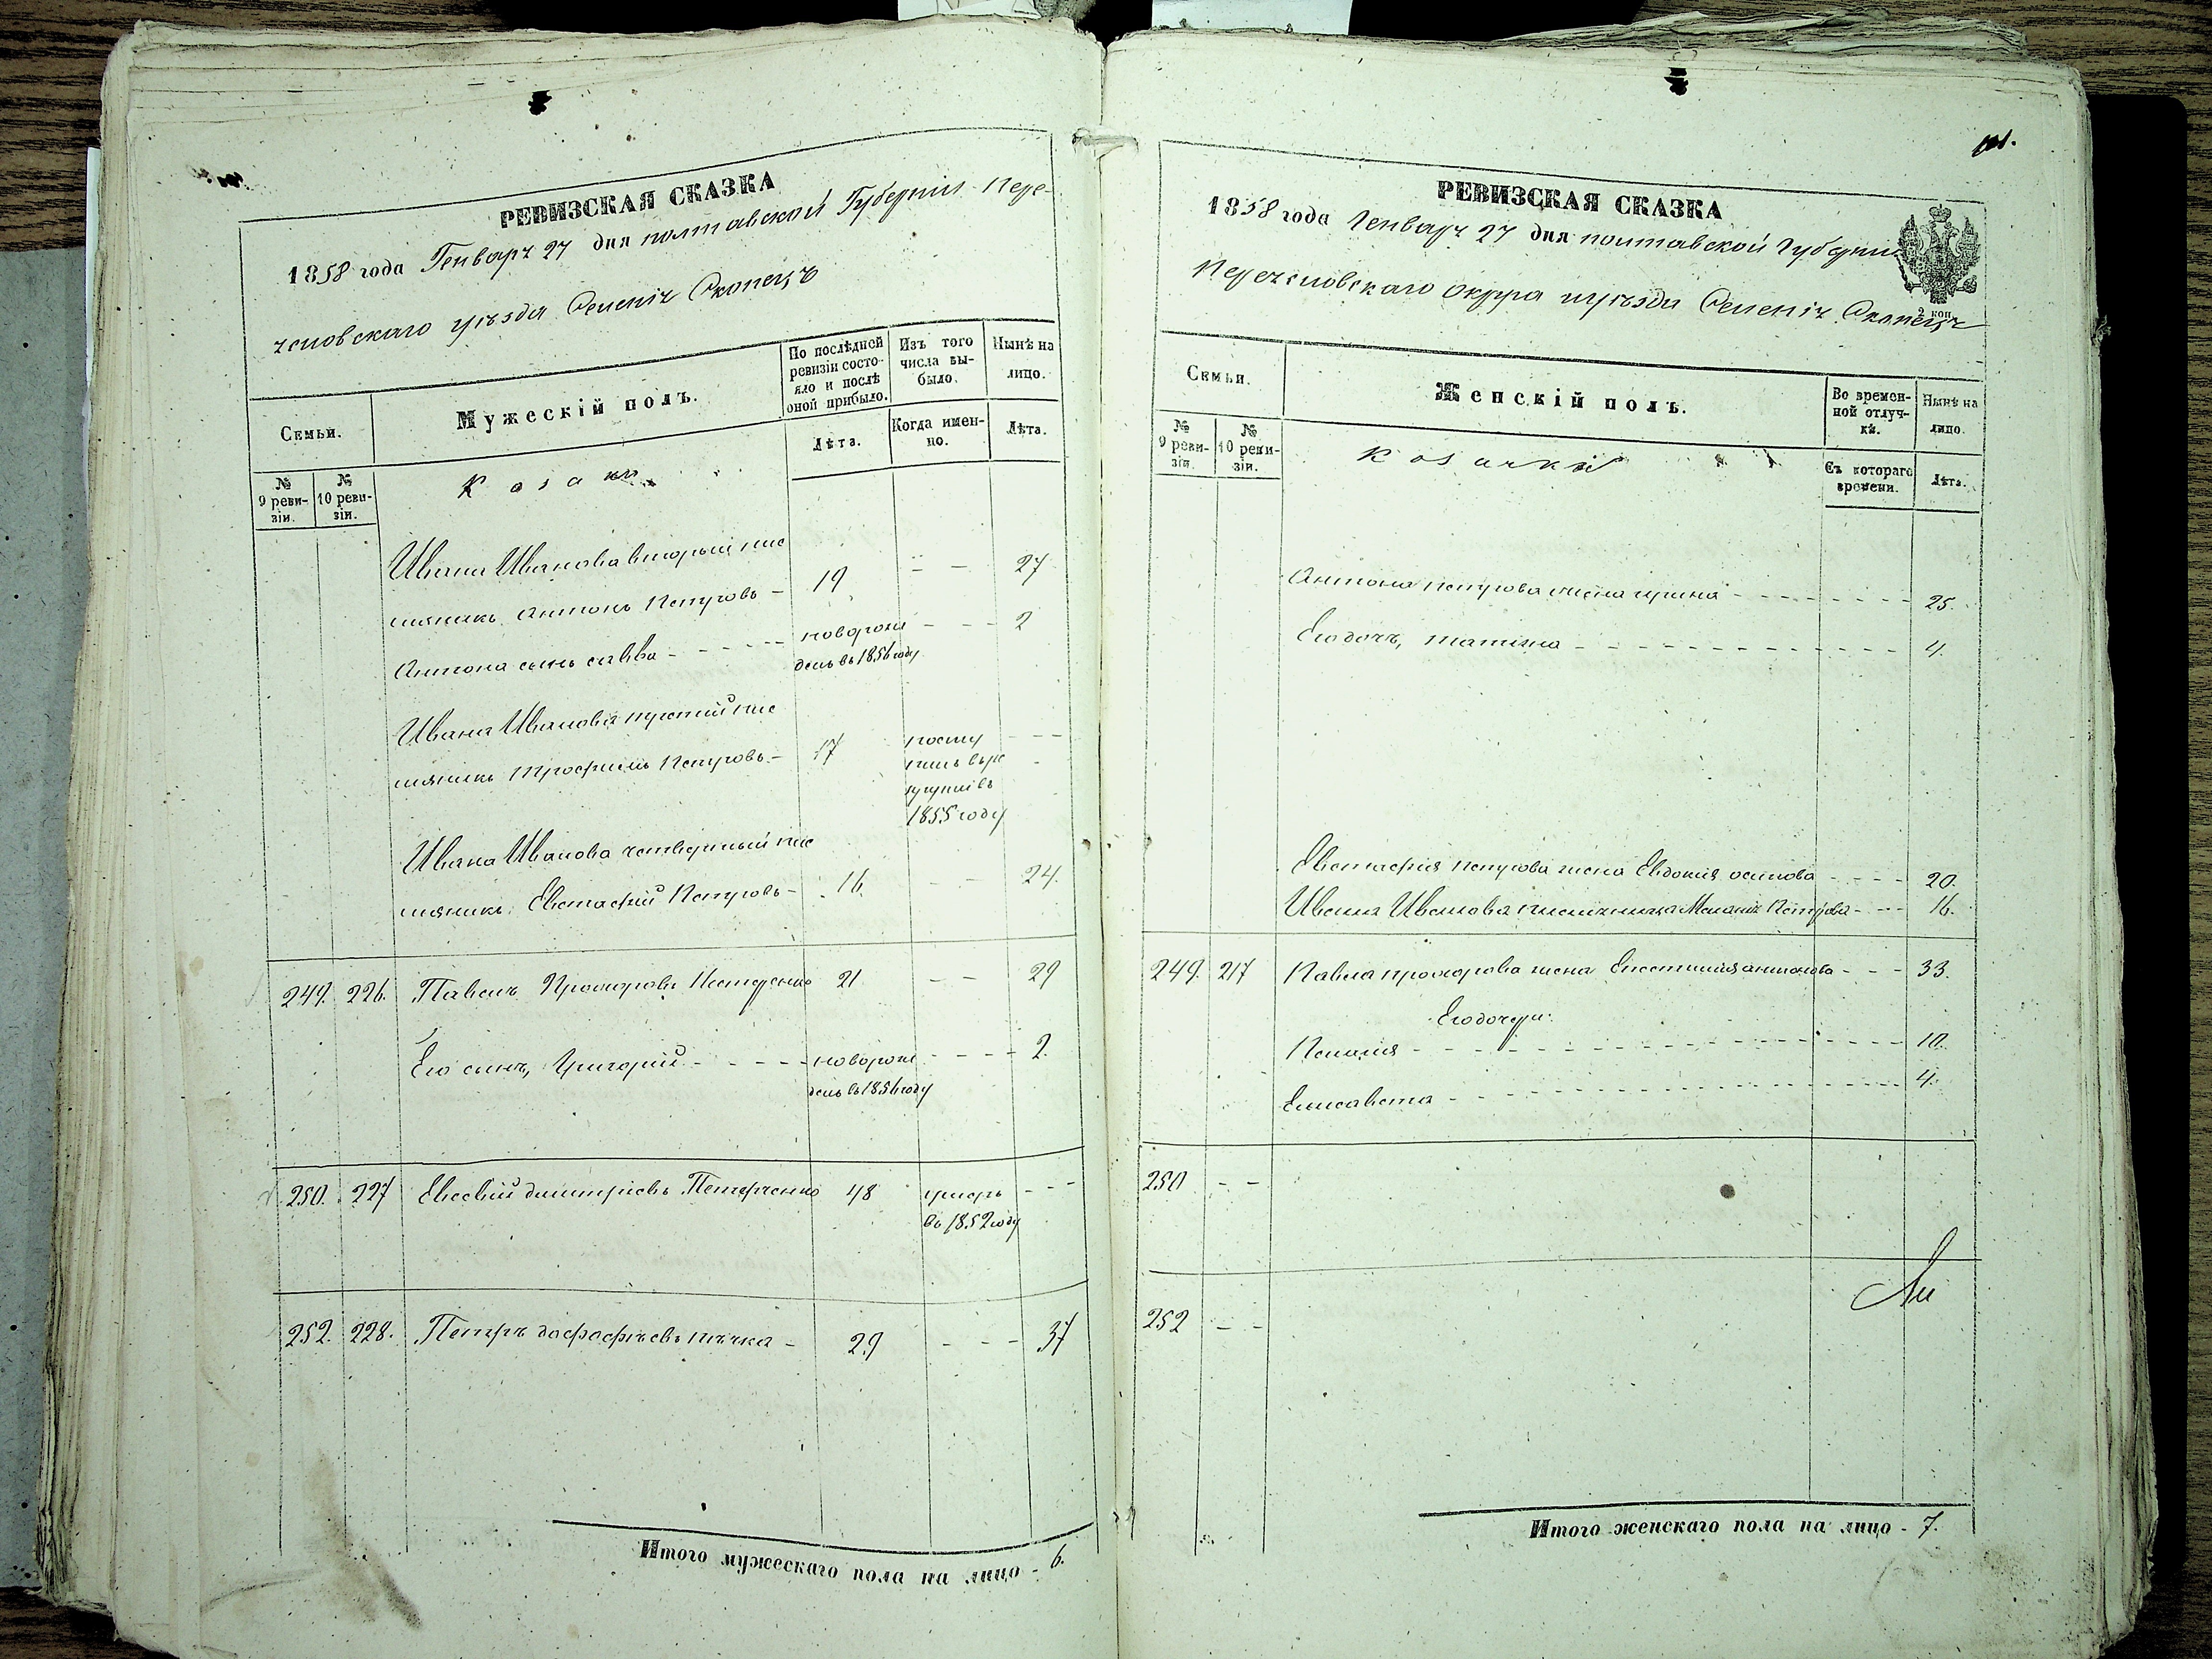 РЕВИЗСКАЯ СКАЗКА
1858 года Генваря 27 дня полтавской Губернiи Пере-
яславскаго уѣзда Селенiя Скопецъ
Семьи.
Мужескiй полъ.
По послѣдней ревизiи состо-
яло и послѣ оной прибыло.
Изъ того числа вы-
было.
Нынѣ на лицо.
№ 9 реви-
зiи.
№ 10 реви-
зiи.
Козаки
Лѣта.
Когда имен-
но.
Лѣта.
Ивана Иванова вторый пле
мяникъ Антонъ Петровъ - 19 - - 27
Антона сынъ Савва - - - - - новорож - - - 2
денъ въ 1856 году
Ивана Иванова третий пле
мяникъ Трофимъ Петровъ - 17 посту - - -
пилъ въ ре
круты въ
1855 году
Ивана Иванова четвертый пле
мяникъ Евстафий Петровъ - 16 - - 24.
249. 226. Павелъ Прохоровъ Нестеренко 21 - - 29
Его сынъ, Григорий - - - - новорож - - - - 2.
денъ въ 1856 году
250. 227 Евсевий димитрiевъ Петренко 48 умеръ - - -
въ 1852 году
252. 228. Петръ - 29 - - - 37
Итого мужескаго пола на лицо - 6.
РЕВИЗСКАЯ СКАЗКА
1858 года Генваря 27 дня полтавской Губернiи
Переяславскаго округа уѣзда Селенiя Скопецъ
2 коп
Семьи.
Женскiй полъ.
Во времен-
ной отлуч-
кѣ.
Нынѣ на лицо.
№ 9 реви-
зiи.
№ 10 реви-
зiи.
Козачки
Съ котораго времени.
Лѣта.
Антона петрова жена ирина - - - - - - - - 25.
Его дочь, татiяна - - - - - - - - - - - - - 4.
Евстафия петрова жена Евдокия осипова - - - - 20.
Ивана Иванова племянница Меланiя Петрова - - - 16.
249. 217 Павла прохорова жена Епестимия антонова - - - 33.
Его дочери:
Пелагия - - - - - - - - - - - - - - - - - 10.
Елисавета - - - - - - - - - - - - - - - - 4.
250 - -
252 - -
Итого женскаго пола на лицо - 7.